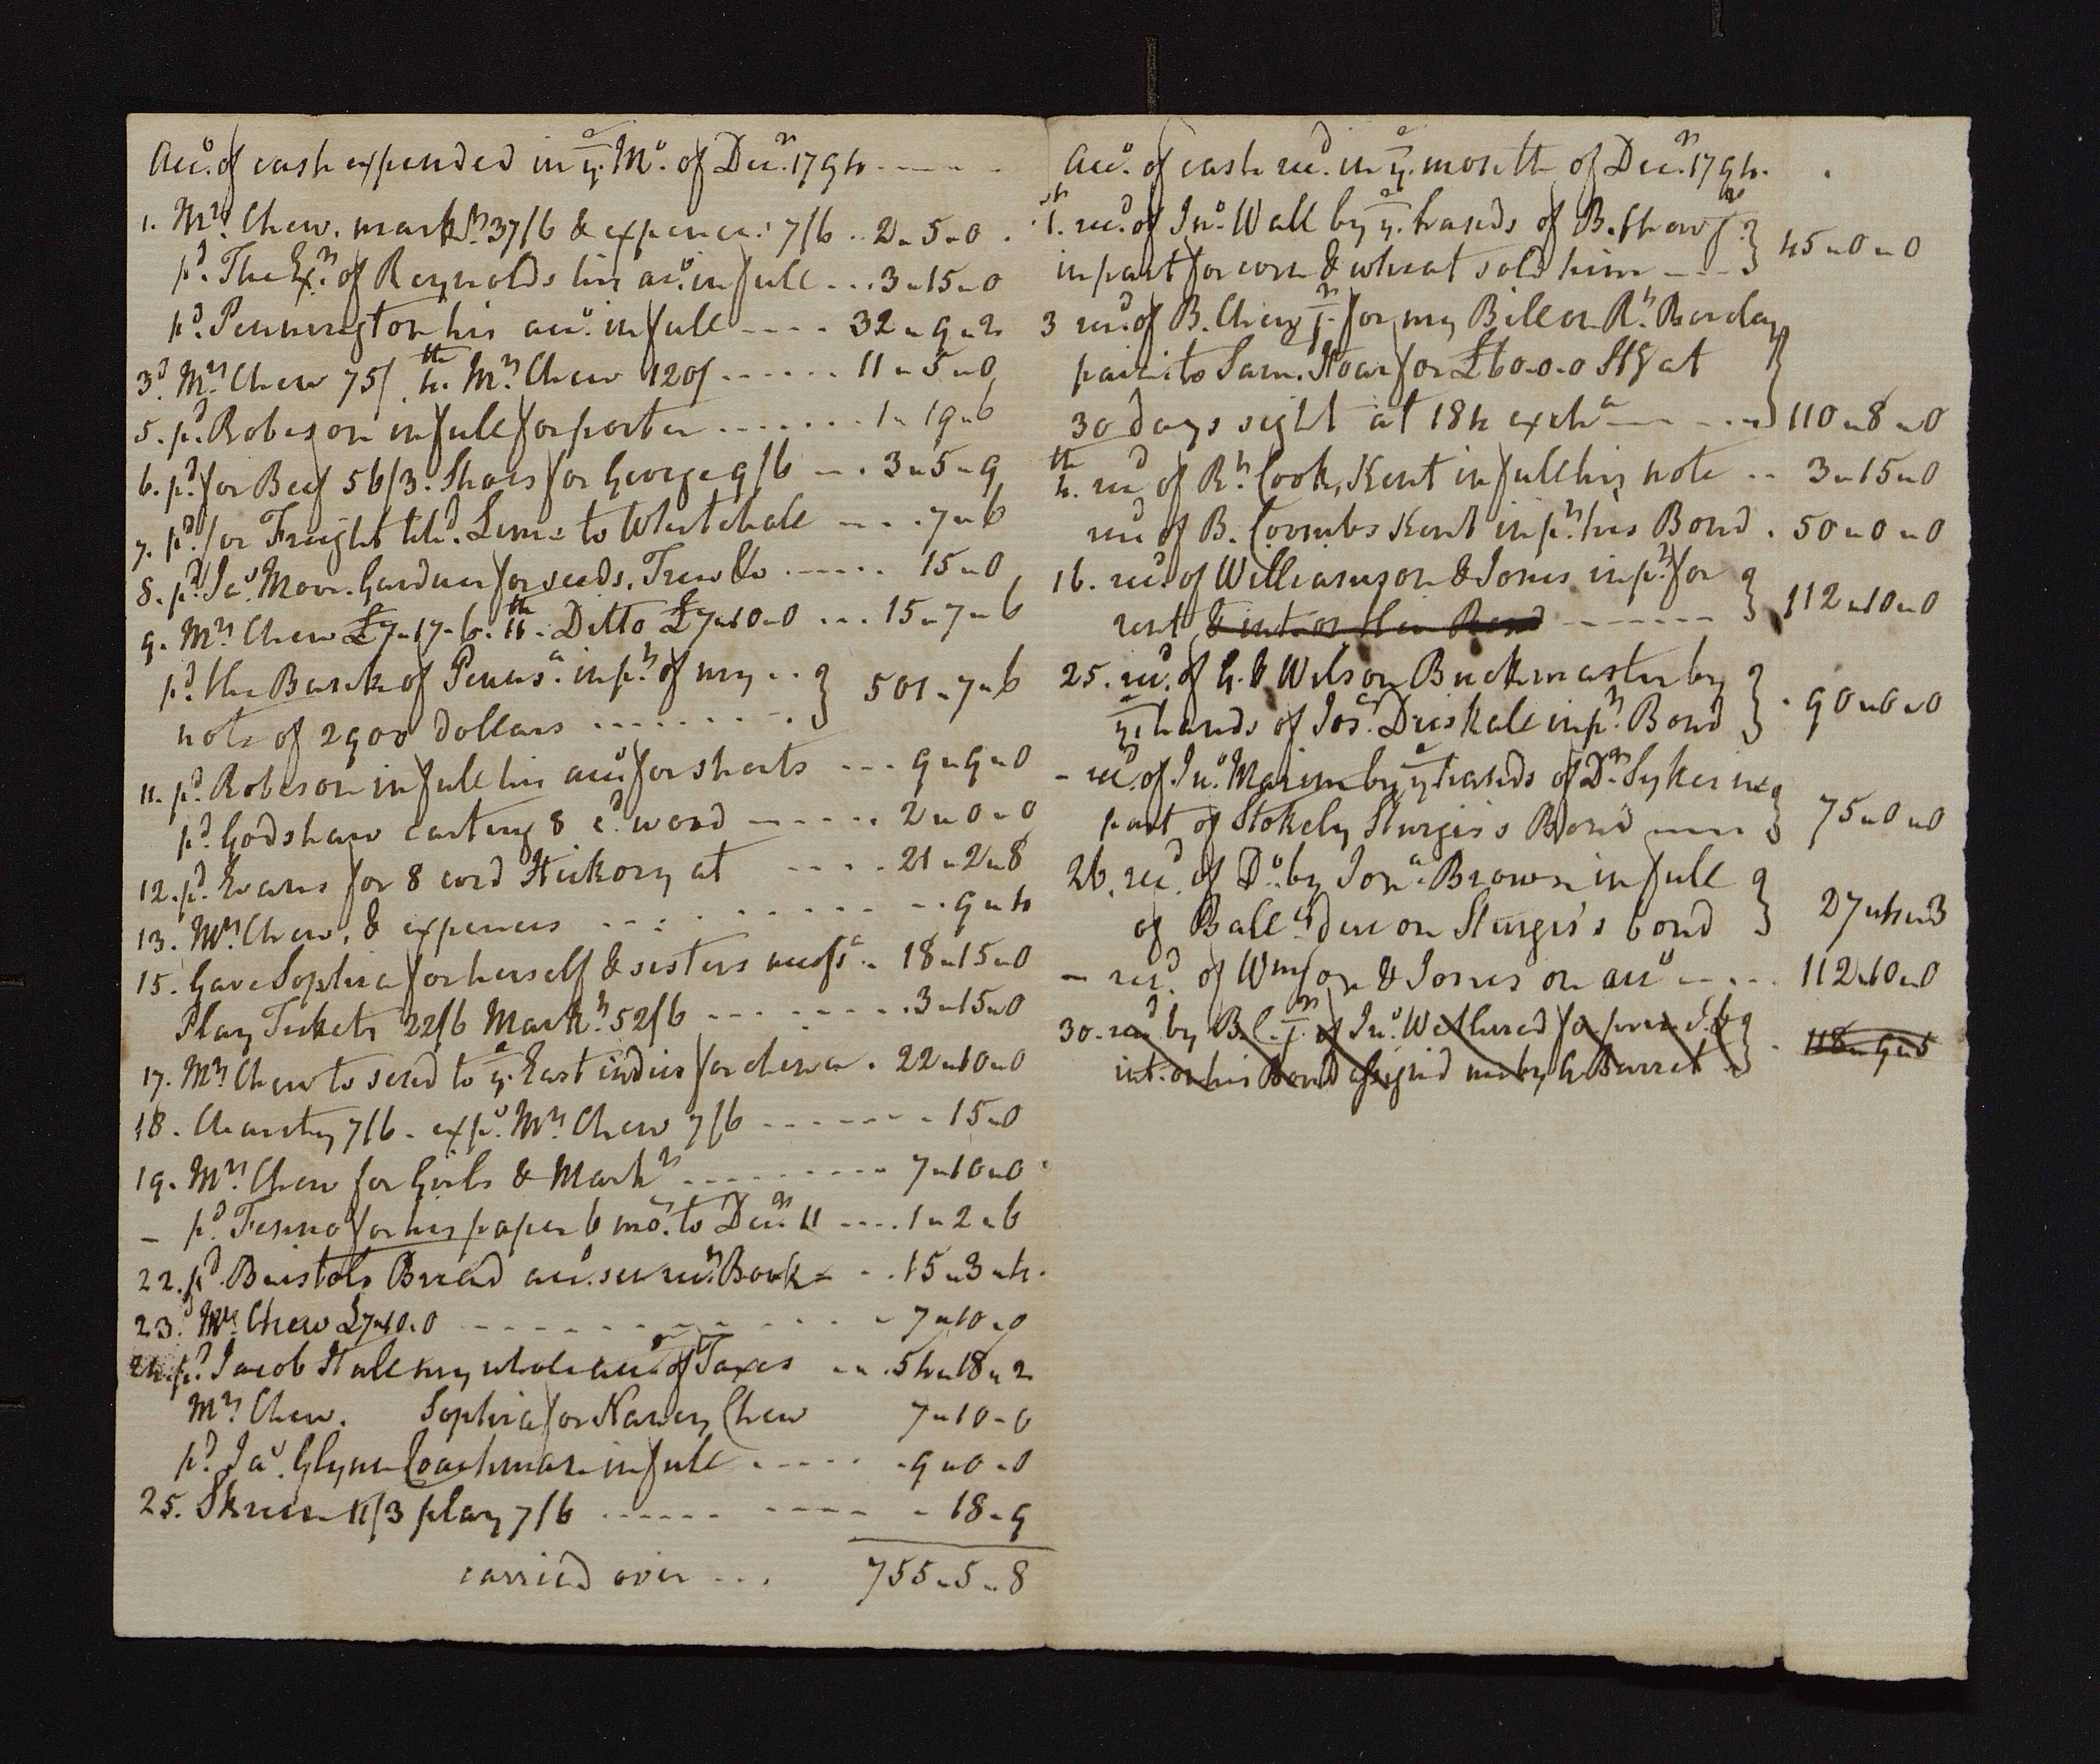 Acco. of cash expended in ye. Mo. of Decr. 1794
1. Mrs. Chew. markt. 37/6 & expences 7/6 .. 2 - 5 - 0
pd. The Exr. of Reynolds his aco. in full ... 3 - 15 - 0
pd. Pennington his acco. in full ---- 32 - 9 - 2
3d. Mrs. Chew 75/ 4th. Mrs. Chew 120/ ...... 11 - 5 - 0
5. pd. Robeson in full for porter ....... 1 - 19 - 6
6. pd. for Beef 56/3. Shoes for George 9/6 -. 3 - 5 - 9
7. pd. for Freight Lime to Whitehall --. 7 - 6
8. pd. Jas. Moor. Gardner for seeds, Trees &c ...... 15 - 0
9. Mrs. Chew £7-17-6. 11th. Ditto £7-10-0 ... 15 - 7 - 6
pd. the Bank of Pennsa. in pt. of my ..
note of 2900 dollars .......... } 501 - 7 - 6
11. pd. Robeson in full his acco. for shorts --- 9 - 9 - 0
pd. Godshaw carting 8 cd. wood ------ 2 - 0 - 0
12. pd. Evans for 8 cord Hickory at ---- 21 - 2 - 8
13. Mrs. Chew, & expences ... 9 - 4
15. Gave Sophia for herself & sisters .. 18 - 15 - 0
Play Tickets 22/6 Markt. 52/6 -------- 3 - 15 - 0
17. Mrs. Chew to send to ye. East indies for china . 22 - 10 - 0
18. Charity 7/6 - exps. Mrs. Chew 7/6 ------ 15 - 0
19. Mrs. Chew for Girls & Markt. -------- 7 - 10 - 0
- pd. Fenno for his paper 6 mos. to Decr. 11 ---- 1 - 2 - 6
22. pd. Bristols Bread acco. see rect. Book - .. 15 - 3 - 4.
23d. Mrs. Chew £7-10-0 ---------- 7 - 10 - 0
24. pd. Jacob Hall my whole acco. of Taxes -- . 54 - 18 - 2
Mrs. Chew. Sophia for Nancy Chew 7 - 10 - 0
pd. Jas. Glynn Coachman in full ..... 9 - 0 - 0
25. 11/3 play 7/6 ...... ---- 18 - 9
carried over ... 755 - 5 - 8
Acco. of cash recd. in ye. month of Decr. 1794.
1st. recd. of Jno. Wall by ye. hands of B. Chew Jr.
in part for corn & wheat sold him --- } 45 - 0 - 0
3 recd. of B. Chew Jr. for my Bill on Rt. Barclay
paid to Sam. Hoar for £60.0.0 Stg at
30 days sight at 184 excha ---- } 110 - 8 - 0
4th. recd. of Rt. Cook, Kent in full his note .. 3 - 15 - 0
recd. of B. Coombs Kent in pt. his Bond . 50 - 0 - 0
16. recd. of Williamson & Jones in pt. for
rent & int. on their Bond ------- } 112 - 10 - 0
25. recd. of G. & Wilson Buckmaster by
ye. hands of Jos. Driskall in pt. Bond } . 90 - 0 - 0
- recd. of Jno. Marim by ye hands of Dr. Sykes in
part of Stokely Sturgis's Bond ---- } 75 - 0 - 0
26. recd. of Do. by Jona. Brown in full
of Balle. due on Sturgis's bond } 27 - 4 - 3
- recd. of Wmson & Jones on acco .... 112 - 10 - 0
30. recd by B. C. Jr. of Jno. Wethered for prin. &
int. on his Bond assigned me by G Barret } . 118 - 9 - 5